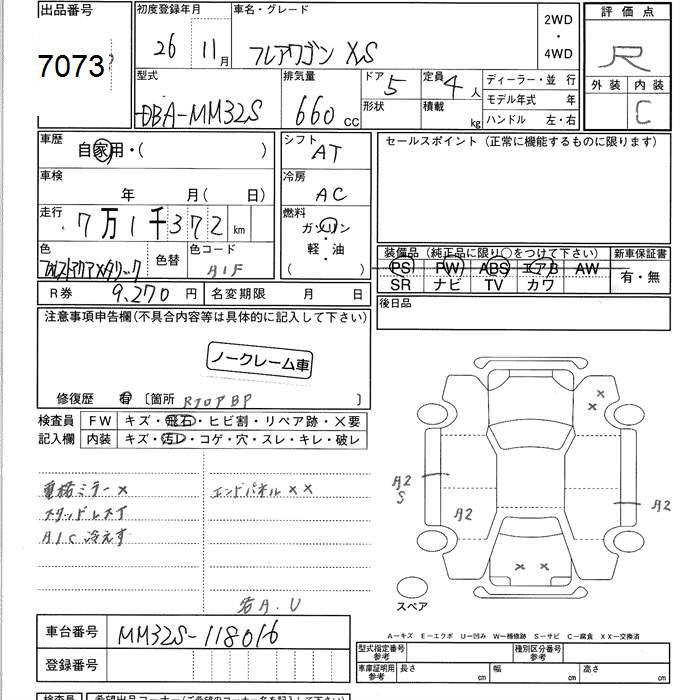 出品番号
7073
初度登録年月
26 11月
車名・グレード
フレアワゴン XS
2WD
・
4WD
評価点
R
外装 内装
C
型式
DBA-MM32S
排気量
660 cc
ドア 5
形状
定員 4人
積載 kg
ディーラー・並行
モデル年式 年
ハンドル 左・右
車歴
自家用・( )
シフト
AT
セールスポイント (正常に機能するものに限ります)
車検
年 月( 日)
冷房
AC
走行
7万1千372km
燃料
ガソリン
軽・油
( )
色
色替
色コード
装備品 (純正品に限り○をつけて下さい)
新車保証書
PS PW ABS エアB AW
SR ナビ TV カワ
有・無
R券 9,270円
名変期限 月 日
後日品
注意事項申告欄(不具合内容等は具体的に記入して下さい)
ノークレーム車
修復歴 有 〔箇所 〕
検査員
記入欄
FW キズ・飛石・ヒビ割・リペア跡・×要
内装 キズ・汚レ・コゲ・穴・スレ・キレ・破レ
電格ミラー×
エンドパネル××
スタッドレス寸
A/C冷えず
若A.U
A2
S
A2
A2
×
×
× ×
スペア
A―キズ E―エクボ U―凹み W―補修跡 S―サビ C―腐食 XX―交換済
車台番号
MM32S-118016
登録番号
型式指定番号
参考
種別区分番号
参考
車庫証明用
参考
長さ cm 幅 cm 高さ cm
検査員
希望出品コーナー(ご希望のコーナー名を記入して下さい)